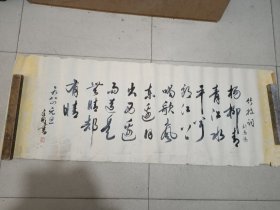 竹枝词
杨柳青
青江水
平闻
郎江上
唱歌声
东边日
出西边
雨道是
无晴却
有晴